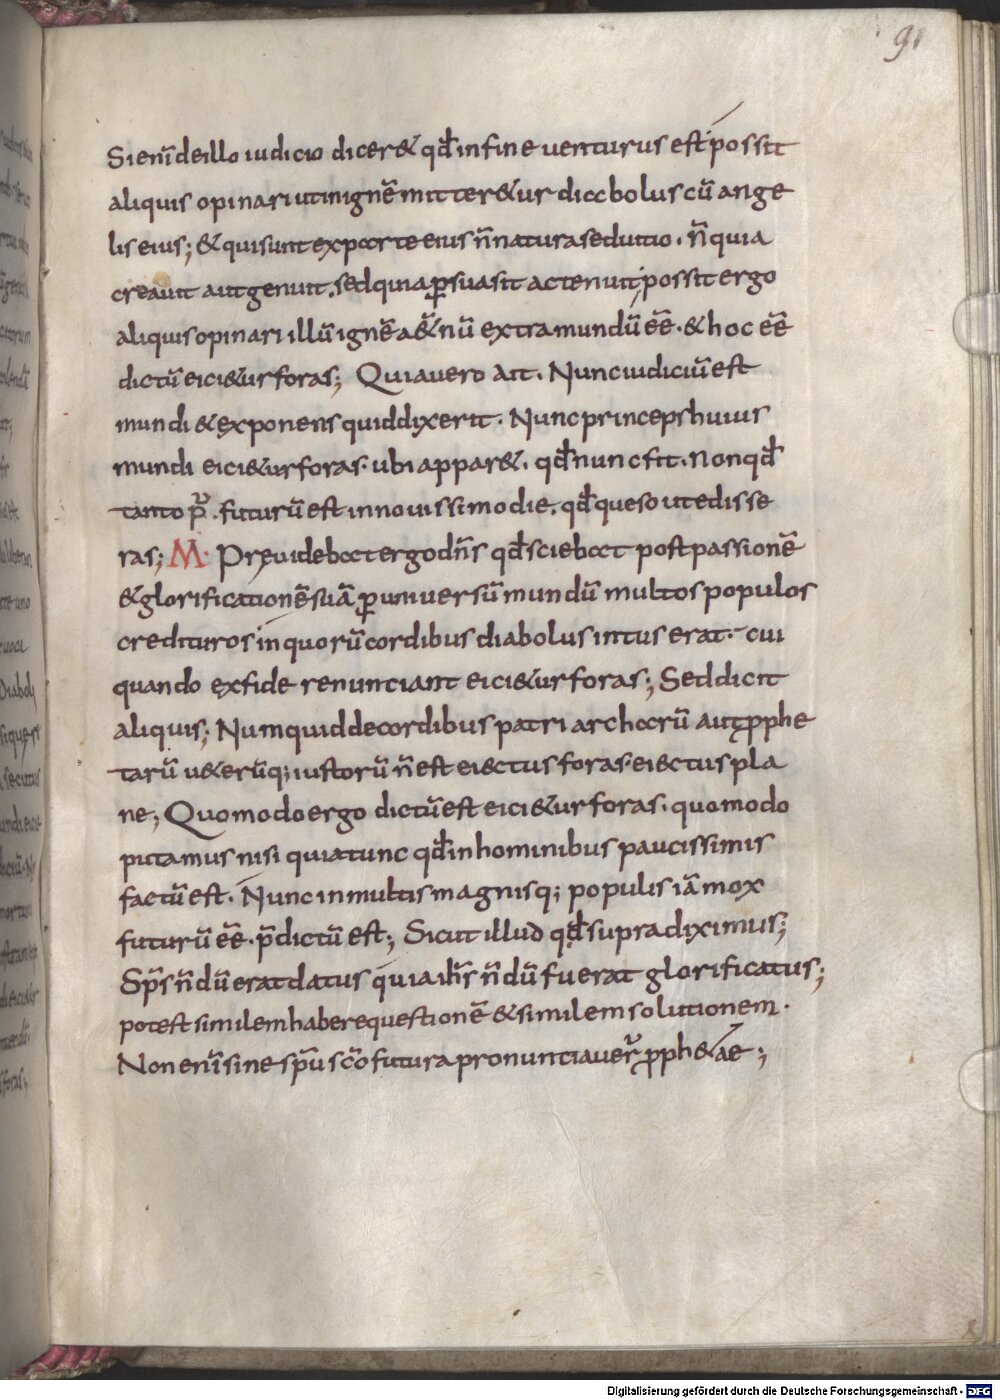 91
Si enī de illo iudicio dicer& qđ in fine uenturus est possit
aliquis opinari ut in ignē mitter&ur diabolus cū ange
lis eius; & qui sunt ex parte eius n̄ natura sed uitio. n̄ quia
creauit aut genuit. sed quia ꝑsuasit ac tenuit possit ergo
aliquis opinari illū ignē a&̄nū extra mundū eē. & hoc eē
dictū eici&ur foras; Quia uero ait. Nunc iudiciū est
mundi & exponens quid dixerit. Nunc princeps huius
mundi eici&ur foras. ubi appar&. qđ nunc fit. non qđ
tanto p̄. futurū est in nouissimo die. qđ queso ut edisse
ras; M. Pręuidebat ergo dn̄s qđ sciebat post passionē
& glorificationē suā ꝑ uniuersū mundū multos populos
credituros in quorū cordibus diabolus intus erat. cui
quando ex fide renunciant eici&ur foras; Sed dicit
aliquis; Numquid de cordibus patriarcharū aut ꝓphe
tarū u&erūq; iustorū n̄ est eiectus foras. eiectus pla
ne; Quomodo ergo dictū est eici&ur foras. quomodo
putamus nisi quia tunc qđ in hominibus paucissimis
factū est. Nunc in multis magnisq; populis iā mox
futurū eē. p̄dictū est; Sicut illud qđ supra diximus;
Sp̄s n̄dū erat datus quia ih̄s n̄dū fuerat glorificatus;
potest similem habere questionē & similem solutionem.
Non enī sine sp̄u sc̄o futura pronunciauer̄ ꝓph&ae;
Digitalisierung gefördert durch die Deutsche Forschungsgemeinschaft - DFG